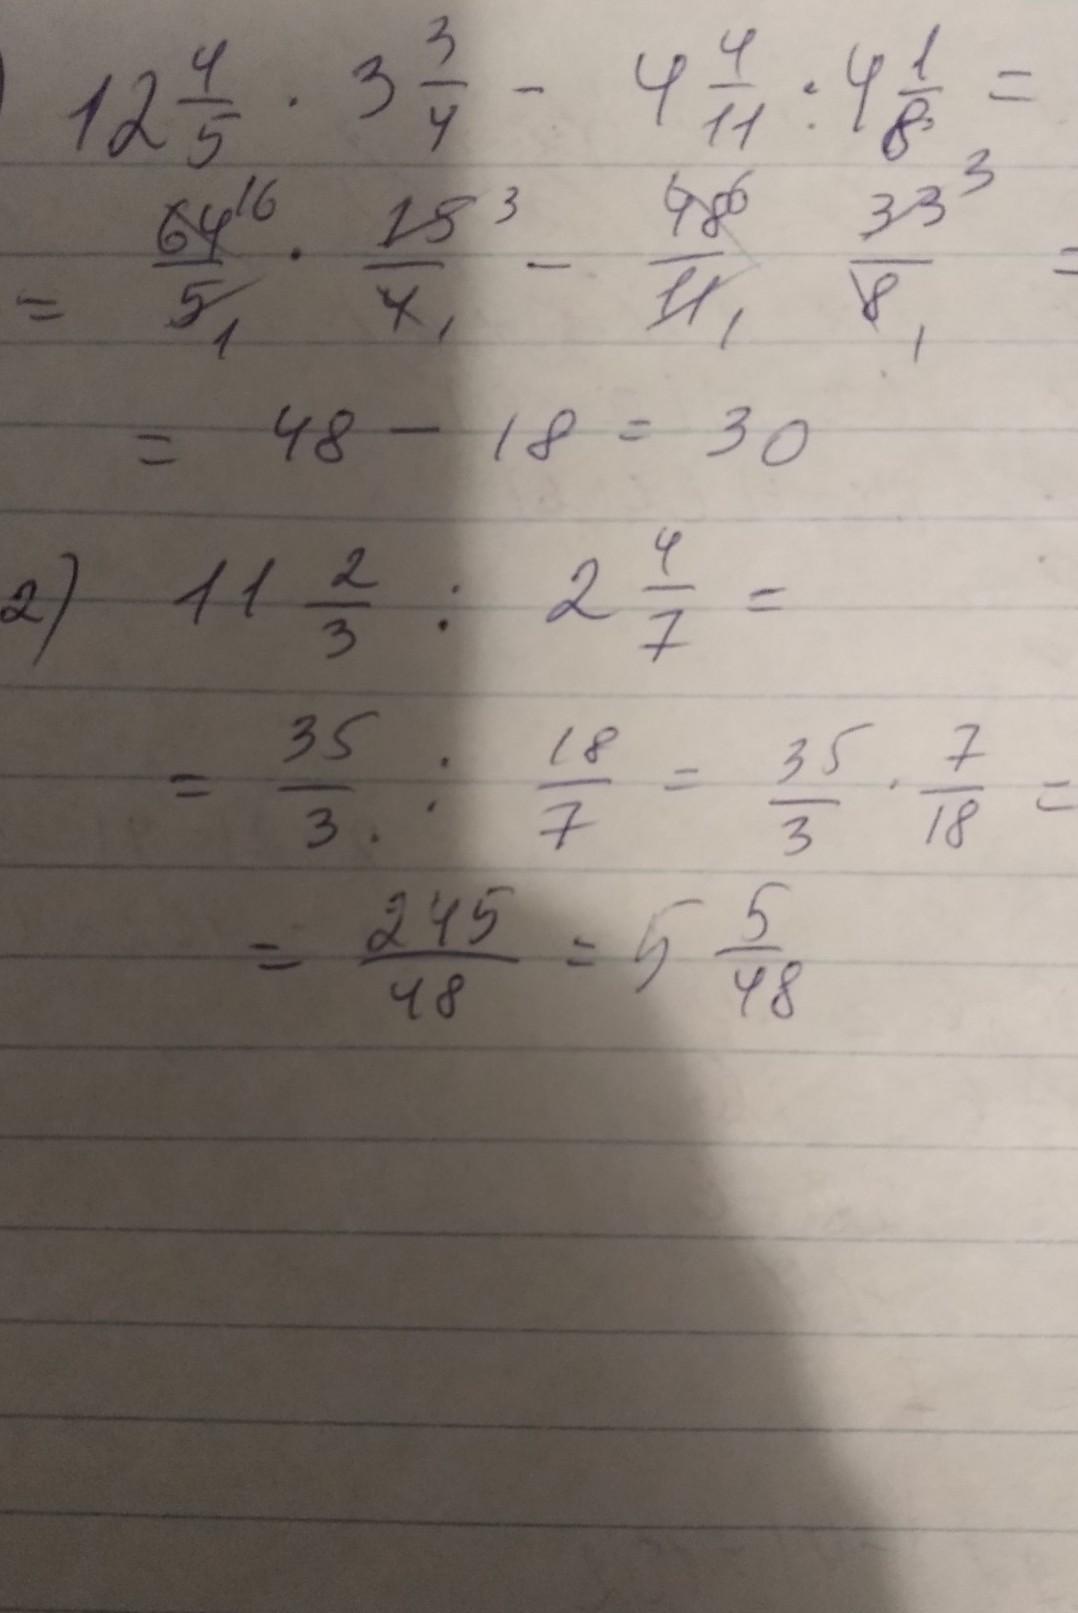 ) 12 4/5 · 3 3/4 - 4 4/11 : 4 1/8 =
= 64 16/5 1 · 15 3/4 1 - 48 6/11 1 33 3/8 1 =
= 48 - 18 = 30
2) 11 2/3 : 2 4/7 =
= 35/3 : 18/7 = 35/3 · 7/18 =
= 245/48 = 5 5/48